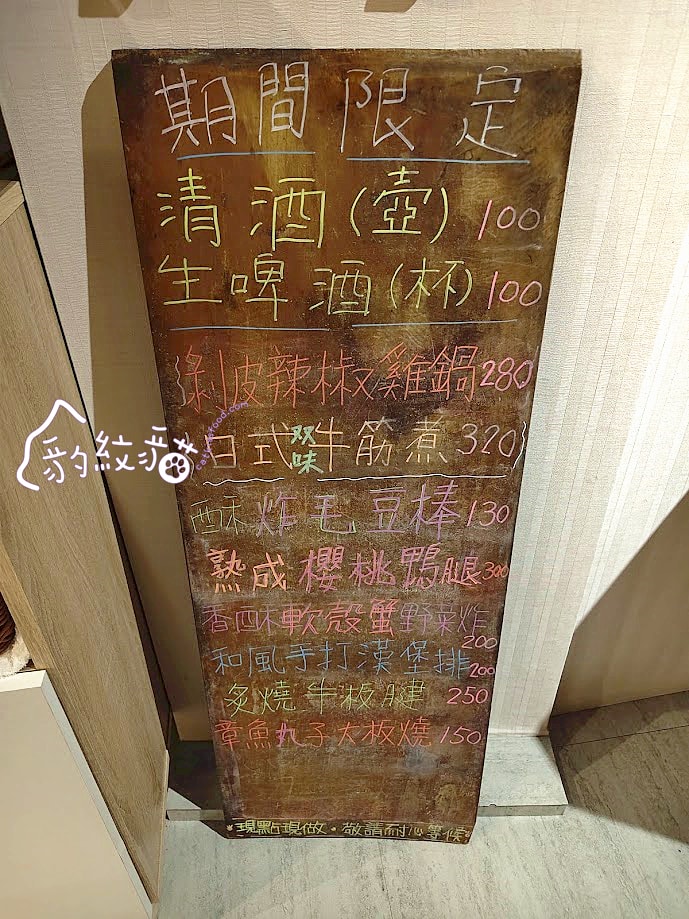 期間限定
清酒(壺) 100
生啤酒(杯) 100
剝皮辣椒雞鍋 280
日式双味牛筋煮 320
酥炸毛豆棒 130
熟成櫻桃鴨腿 300
香酥軟殼蟹野菜炸 200
和風手打漢堡排 200
炙燒牛板腱 250
章魚丸子大板燒 150
現點現做·敬請耐心等候
豹紋貓